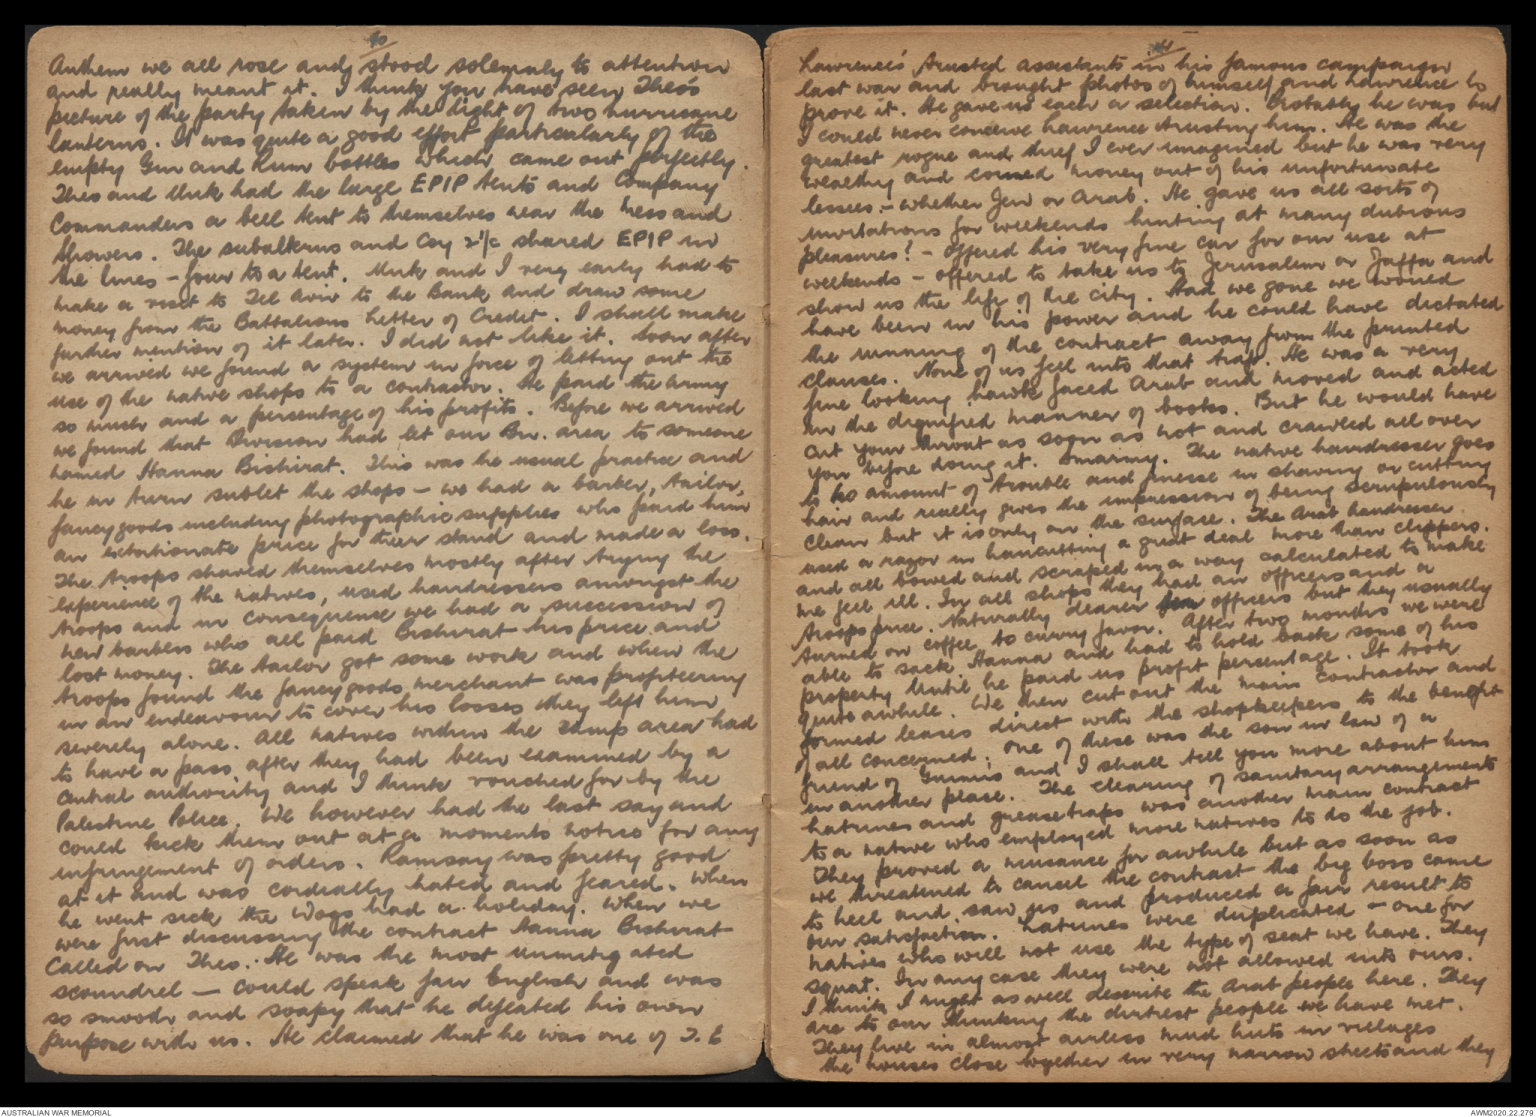 40
Anthem we all rose and stood solemnly to attention
and really meant it. I think you have seen Theo's
picture of the party taken by the light of two hurricane
lanterns. It was quite a good effort particularly of the
empty Gin and Rum bottles which came out perfectly.
Theo and had the large EPIP tents and Company
Commanders a bell tent to themselves near the Mess and
Showers. The subalterns and Coy 2 i/c shared EPIP in
the lines - four to a tent. and I very early had to
make a visit to Tel Aviv to the Bank and draw some
money from the Battalions Letter of Credit. I shall make
further mention of it later. I did not like it. Soon after
we arrived we found a system in force of letting out the
use of the native shops to a contractor. He paid the army
so much and a percentage of his profits. Before we arrived
we found that Division had let our Bn. area to someone
named Hanna Bishirat. This was the usual practice and
he in turn sublet the shops - we had a barber, tailor,
fancy goods including photographic supplies who paid him
an extortionate price for their stand and made a loss.
The troops shaved themselves mostly after trying the
experience of the natives, used hairdressers amongst the
troops and in consequence we had a succession of
new barbers who all paid Bishirat his price and
lost money. The tailor got some work and when the
troops found the fancy goods merchant was profiteering
in an endeavour to cover his losses they left him
severely alone. All natives within the camp area had
to have a pass after they had been examined by a
central authority and I think vouched for by the
Palestine Police. We however had the last say and
could kick them out at a moments notice for any
infringement of orders. Ramsay was pretty good
at it and was cordially hated and feared. When
he went sick the Wogs had a holiday. When we
were first discussing the contract Hanna Bishirat
called on Theo. He was the most unmitigated
scoundrel — could speak fair English and was
so smooth and soapy that he defeated his own
purpose with us. He claimed that he was one of T. E
41
Lawrence's trusted assistants in his famous campaign
last war and brought photos of himself and Lawrence to
prove it. He gave us each a selection. Probably he was but
I could never conceive Lawrence trusting him. He was the
greatest rogue and thief I ever imagined but he was very
wealthy and coined money out of his unfortunate
lessees - whether Jew or Arab. He gave us all sorts of
invitations for weekends hinting at many dubious
pleasures! - offered his very fine car for our use at
weekends - offered to take us to Jerusalem or Jaffa and
show us the life of the city. Had we gone we would
have been in his power and he could have dictated
the running of the contract away from the printed
clauses. None of us fell into that trap. He was a very
fine looking hawk faced Arab and moved and acted
in the dignified manner of books. But he would have
cut your throat as soon as not and crawled all over
you before doing it. Smarmy. The native hairdresser goes
to no amount of trouble and finesse in shaving or cutting
hair and really gives the impression of being scrupulously
clean but it is only on the surface. The Arab hairdresser
used a razor in haircutting a great deal more than clippers.
and all bowed and scraped in a way calculated to make
me feel ill. In all shops they had an officers and a
troops price. Naturally dearer for officers but they usually
turned on coffee to curry favor. After two months we were
able to sack Hanna and had to hold back some of his
property until he paid us profit percentage. It took
quite awhile. We then cut out the main contractor and
formed leases direct with the shopkeepers to the benefit
of all concerned; one of these was the son in law of a
friend of and I shall tell you more about him
in another place. The clearing of sanitary arrangements
latrines and greasetraps was another main contract
to a native who employed more natives to do the job.
They proved a nuisance for awhile but as soon as
we threatened to cancel the contract the big boss came
to heel and saw us and produced a fair result to
our satisfaction. Latrines were duplicated - one for
natives who will not use the type of seat we have. They
squat. In any case they were not allowed into ours.
I think I might as well describe the Arab people here. They
are to our thinking the dirtiest people we have met.
They live in almost airless mud huts in villages
the houses close together in very narrow streets and they
AUSTRALIAN WAR MEMORIAL
AWM2020.22.279